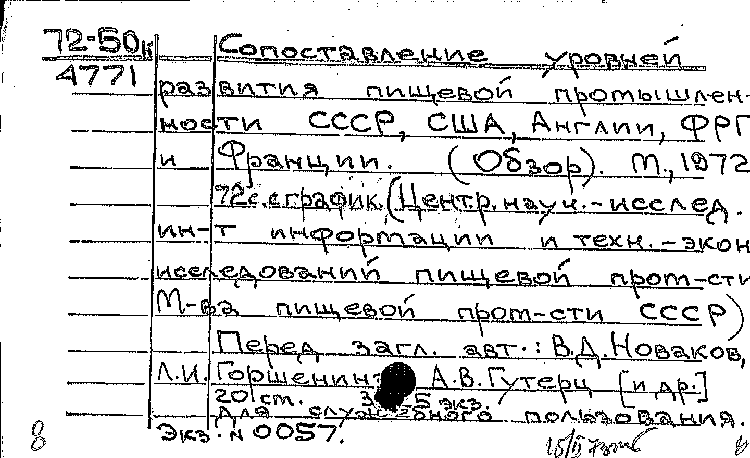 72-50к Сопоставление уровней
4771 развития пищевой промышлен-
ности СССР, США, Англии, ФРГ
и Франции. (Обзор). М., 1972
72с. с график. (Центр. науч.-исслед.
ин-т информации и техн.-экон
исследований пищевой пром-сти
М-ва пищевой пром-сти СССР)
Перед загл. авт.: В.Д. Новаков,
Л.И. А.В. Гутерц [и др.]
20 ст. экз.
Для служебного пользования.
Экз. N 0057.
8